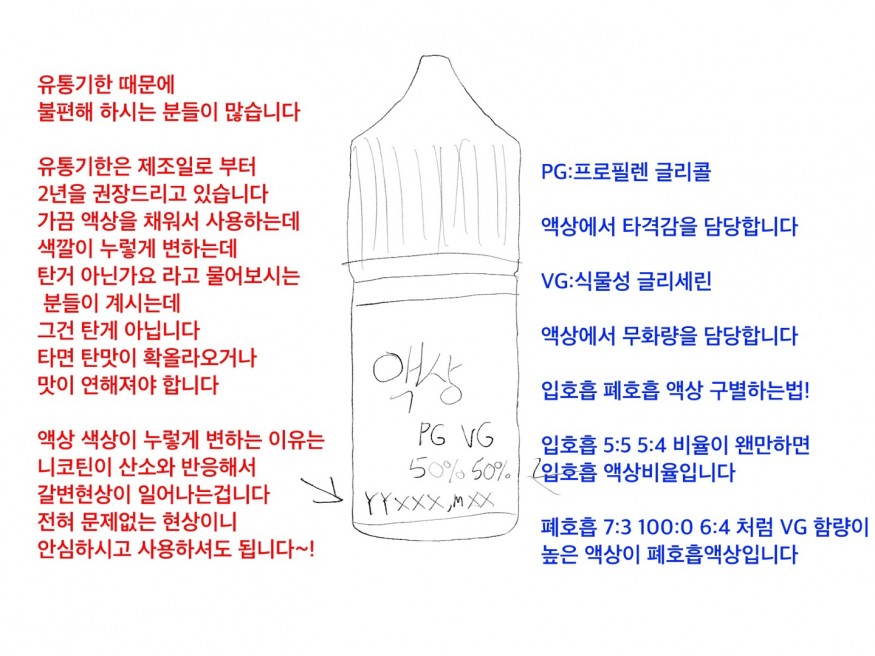 유통기한 때문에
불편해 하시는 분들이 많습니다
유통기한은 제조일로 부터
2년을 권장드리고 있습니다
가끔 액상을 채워서 사용하는데
색깔이 누렇게 변하는데
탄거 아닌가요 라고 물어보시는
분들이 계시는데
그건 탄게 아닙니다
타면 탄맛이 확올라오거나
맛이 연해져야 합니다
액상 색상이 누렇게 변하는 이유는
니코틴이 산소와 반응해서
갈변현상이 일어나는겁니다
전혀 문제없는 현상이니
안심하시고 사용하셔도 됩니다~!
액상
PG VG
50% 50%
YYXXX,MXX
PG:프로필렌 글리콜
액상에서 타격감을 담당합니다
VG:식물성 글리세린
액상에서 무화량을 담당합니다
입호흡 폐호흡 액상 구별하는법!
입호흡 5:5 5:4 비율이 왠만하면
입호흡 액상비율입니다
폐호흡 7:3 100:0 6:4 처럼 VG 함량이
높은 액상이 폐호흡액상입니다